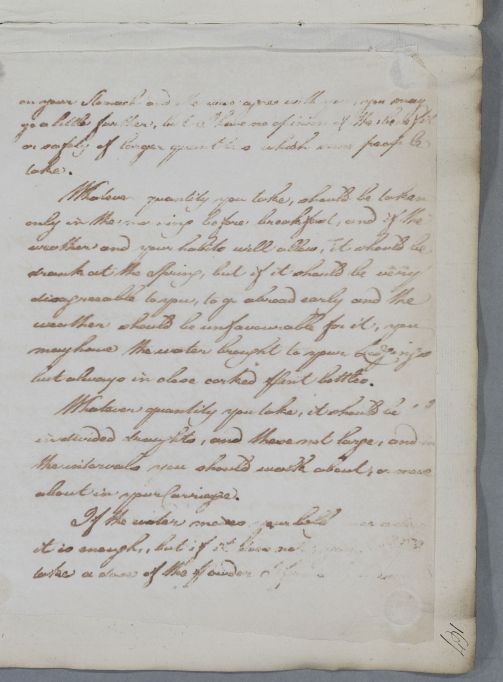 on your Stomach and agree with you, you may
go a little further, but I have no opinion of the
or safety of larger quantities which some people
take.
Whatever quantity you take, should be taken
only in the morning before breakfast, and if the
weather and your habits will allow, it should be
drank at the Spring, but if it should be very
disagreeable to you, to go abroad early and the
weather should be unfavourable for it, you
may have the water brought to your Lodgings
but always in close corked flint bottles.
Whatever quantity you take, it should be
in divided draughts, and these not large, and in
the intervals you should walk about, or move
about in your Carriage.
If the water your
it is enough, but if it have not
take a dose of the Powder
191